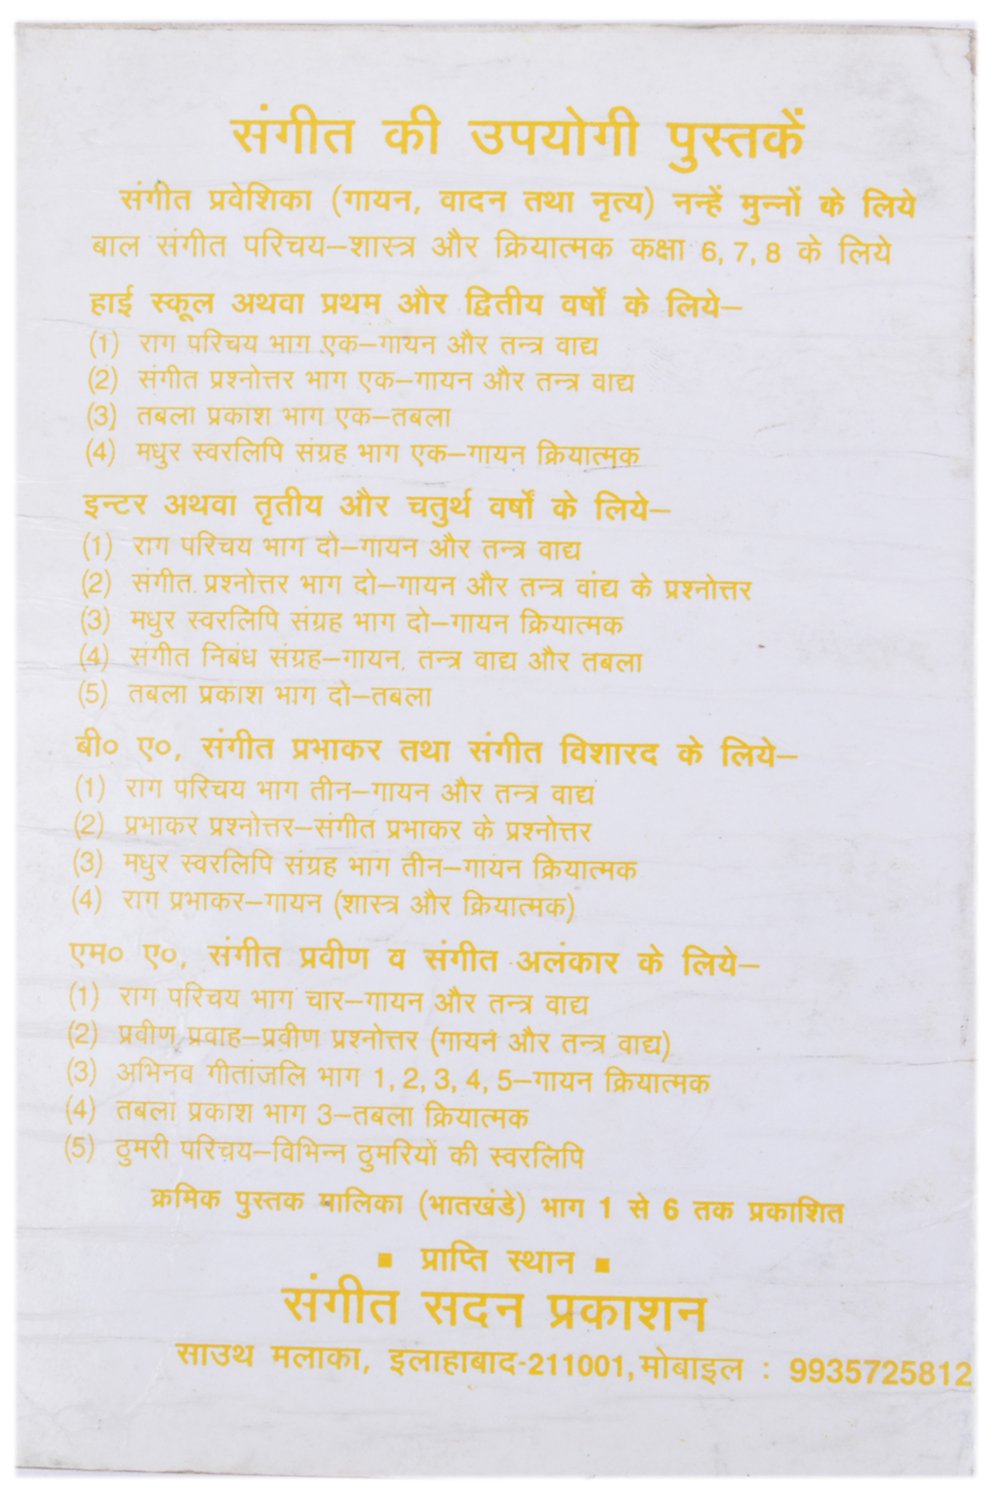 संगीत की उपयोगी पुस्तकें
संगीत प्रवेशिका (गायन, वादन तथा नृत्य) नन्हें मुन्नों के लिये
बाल संगीत परिचय–शास्त्र और क्रियात्मक कक्षा 6, 7, 8 के लिये
हाई स्कूल अथवा प्रथम और द्वितीय वर्षों के लिये–
(1) राग परिचय भाग एक–गायन और तन्त्र वाद्य
(2) संगीत प्रश्नोत्तर भाग एक–गायन और तन्त्र वाद्य
(3) तबला प्रकाश भाग एक–तबला
(4) मधुर स्वरलिपि संग्रह भाग एक–गायन क्रियात्मक
इन्टर अथवा तृतीय और चतुर्थ वर्षों के लिये–
(1) राग परिचय भाग दो–गायन और तन्त्र वाद्य
(2) संगीत प्रश्नोत्तर भाग दो–गायन और तन्त्र वांद्य के प्रश्नोत्तर
(3) मधुर स्वरलिपि संग्रह भाग दो–गायन क्रियात्मक
(4) संगीत निबंध संग्रह–गायन, तन्त्र वाद्य और तबला
(5) तबला प्रकाश भाग दो–तबला
बी० ए०, संगीत प्रभाकर तथा संगीत विशारद के लिये–
(1) राग परिचय भाग तीन–गायन और तन्त्र वाद्य
(2) प्रभाकर प्रश्नोत्तर–संगीत प्रभाकर के प्रश्नोत्तर
(3) मधुर स्वरलिपि संग्रह भाग तीन–गायन क्रियात्मक
(4) राग प्रभाकर–गायन (शास्त्र और क्रियात्मक)
एम० ए०, संगीत प्रवीण व संगीत अलंकार के लिये–
(1) राग परिचय भाग चार–गायन और तन्त्र वाद्य
(2) प्रवीण प्रवाह–प्रवीण प्रश्नोत्तर (गायन और तन्त्र वाद्य)
(3) अभिनव गीतांजलि भाग 1, 2, 3, 4, 5–गायन क्रियात्मक
(4) तबला प्रकाश भाग 3–तबला क्रियात्मक
(5) ठुमरी परिचय–विभिन्न ठुमरियों की स्वरलिपि
क्रमिक पुस्तक मालिका (भातखंडे) भाग 1 से 6 तक प्रकाशित
▪ प्राप्ति स्थान ▪
संगीत सदन प्रकाशन
साउथ मलाका, इलाहाबाद-211001, मोबाइल : 9935725812